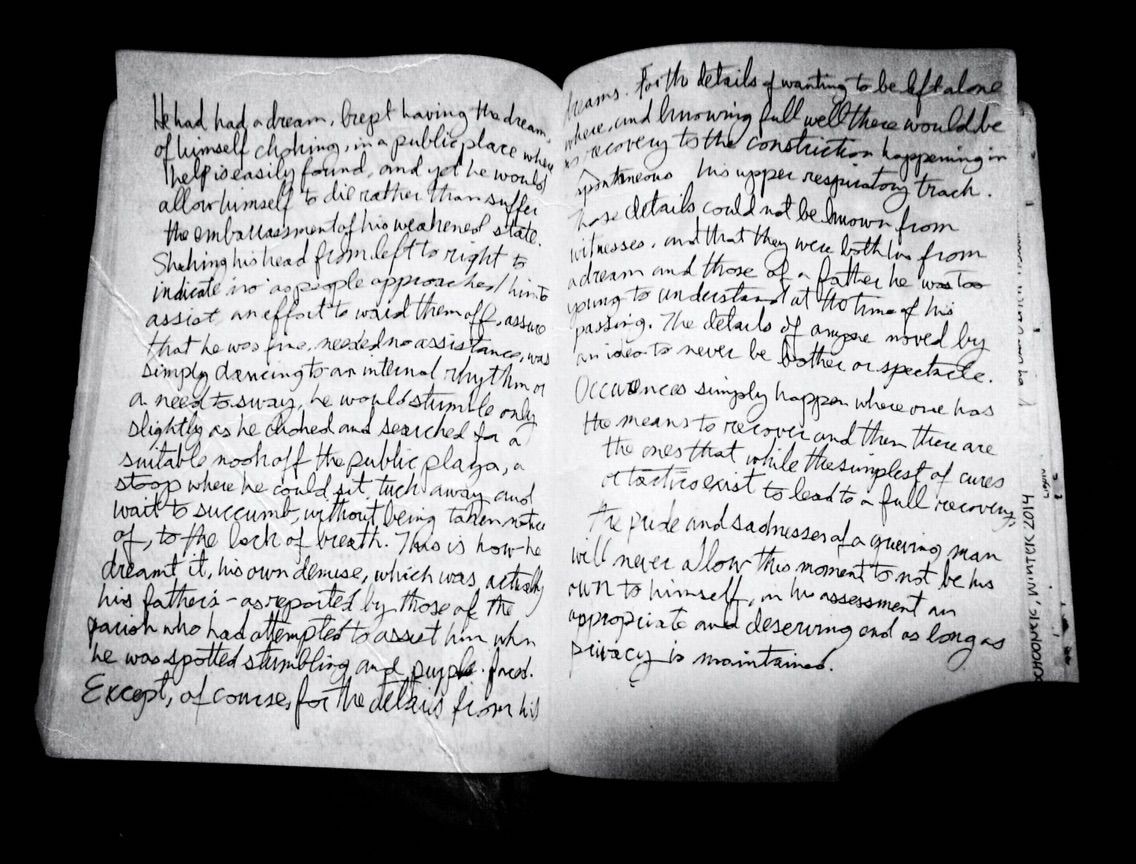 He had had a dream, kept having the dream,
of himself choking, in a public place where
help is easily found, and yet he would
allow himself to die rather than suffer
the embarrassment of his weakened state.
Shaking his head from left to right to
indicate 'no' as people approached him to
assist, an effort to ward them off, assure
that he was fine, needed no assistance, was
simply dancing to an internal rhythm or
a need to sway, he would stumble only
slightly as he choked and searched for a
suitable nook off the public plaza, a
stoop where he could sit, tuck away and
wait to succumb, without being taken notice
of, to the lack of breath. This is how he
dreamt it, his own demise, which was actually
his father's - as reported by those of the
parish who had attempted to assist him when
he was spotted stumbling and purple faced.
Except, of course, for the details from his
dreams. For the details of wanting to be left alone
where, and knowing full well there would be
no recovery to the constriction happening in
spontaneous his upper respiratory track.
Those details could not be known from
witnesses, and that they were both his from
a dream and those of a father he was too
young to understand at the time of his
passing. The details of anyone moved by
an idea to never be bother or spectacle.
Occurences simply happen where one has
the means to recover and then there are
the ones that while the simplest of cures
or tactics exist to lead to a full recovery,
the pride and sadnesses of a grieving man
will never allow this moment to not be his
own to himself, in his assessment an
appropriate and deserving end as long as
privacy is maintained.
SCHOONER, WINTER 2014